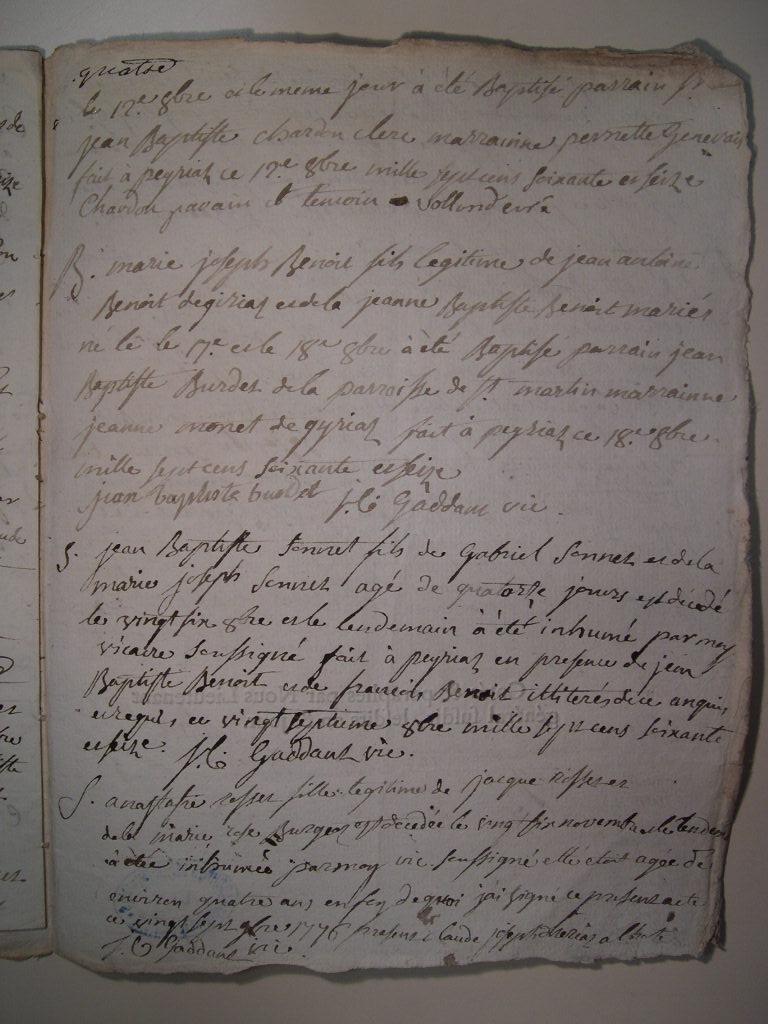 quatre
le 17.e 8bre et le meme jour à été Baptisé parrain Sr
jean Baptiste chardon clerc marrainne pernette Genevais
fait à peyriat ce 17.e 8bre mille sept cens soixante et seize
Chardon parain et temoin
B. marie joseph Benoit fils legitime de jean antoine
Benoit de giriat et de la jeanne Baptiste Benoit mariés
né le 17.e et le 18e 8bre à été Baptisé parrain jean
Baptiste Burdet de la parroisse de St. martin marrainne
jeanne monet de gyriat fait à peyriat ce 18.e 8bre
mille sept cens soixante et seize
jean baptiste burdet j.C Gaddant vic.
S. jean Baptiste Sonnet fils de Gabriel Sonnet et de la
marie joseph Sonnet agé de quatorse jours est décédé
le vingt six 8bre et le lendemain à été inhumé par moy
vicaire soussigné fait à peyriat en presence de jean
Baptiste Benoit et de francois Benoit illiterés de ce enquis
et requis ce vingt septieme 8bre mille sept cens soixante
et seize. j.C. Gaddant vic.
S. rosset fille legitime de jacque rosset et
de la marie rose est decedée le vingt six novembre et le lendem
à été inhumée par moy vic. soussigné elle etoit agée de
environ quatre ans en foy de quoi j'ai signé ce present acte
ce vingt sept 9bre 1776 presens claude joseph
j.C Gaddant vic.